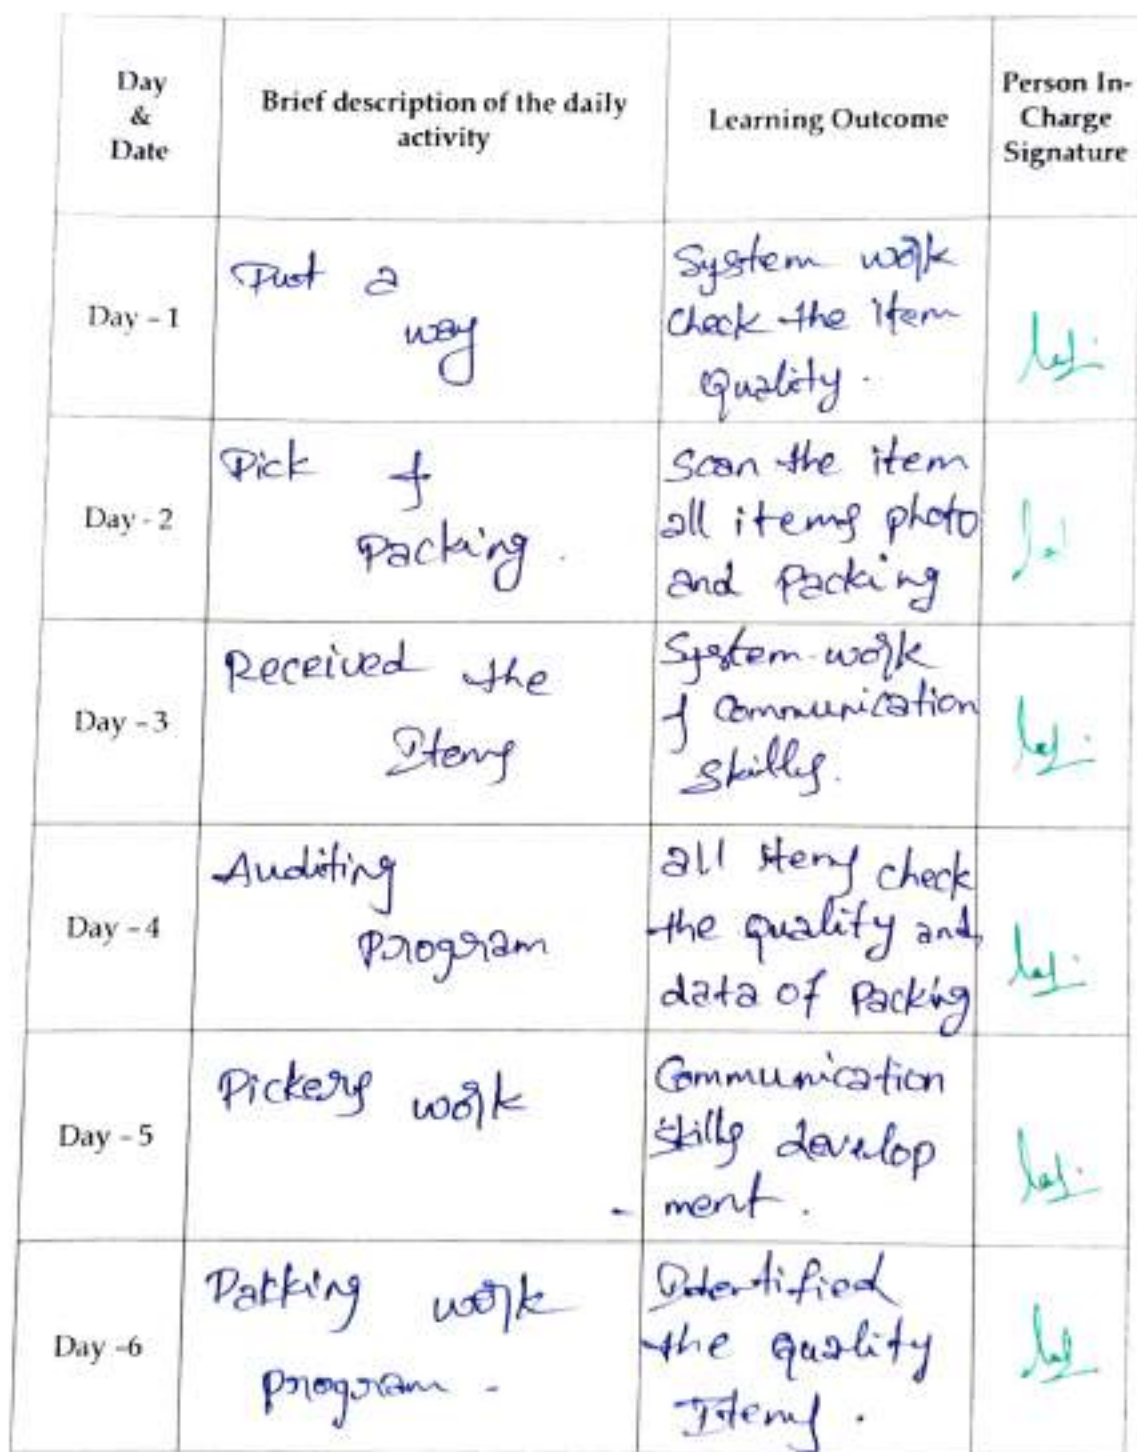 Day
&
Date
Brief description of the daily
activity
Learning Outcome
Person In-
Charge
Signature
Day - 1
Put a
way
System work
check the item
Quality.
Day - 2
Pick &
Packing.
Scan the item
all items photo
and packing
Day - 3
Received the
Items
System work
& Communication
skills.
Day - 4
Auditing
Program
all items check
the quality and
data of Packing
Day - 5
Pickers work
Communication
skills develop
- ment.
Day -6
Packing work
Program -
Identified
the quality
Items.